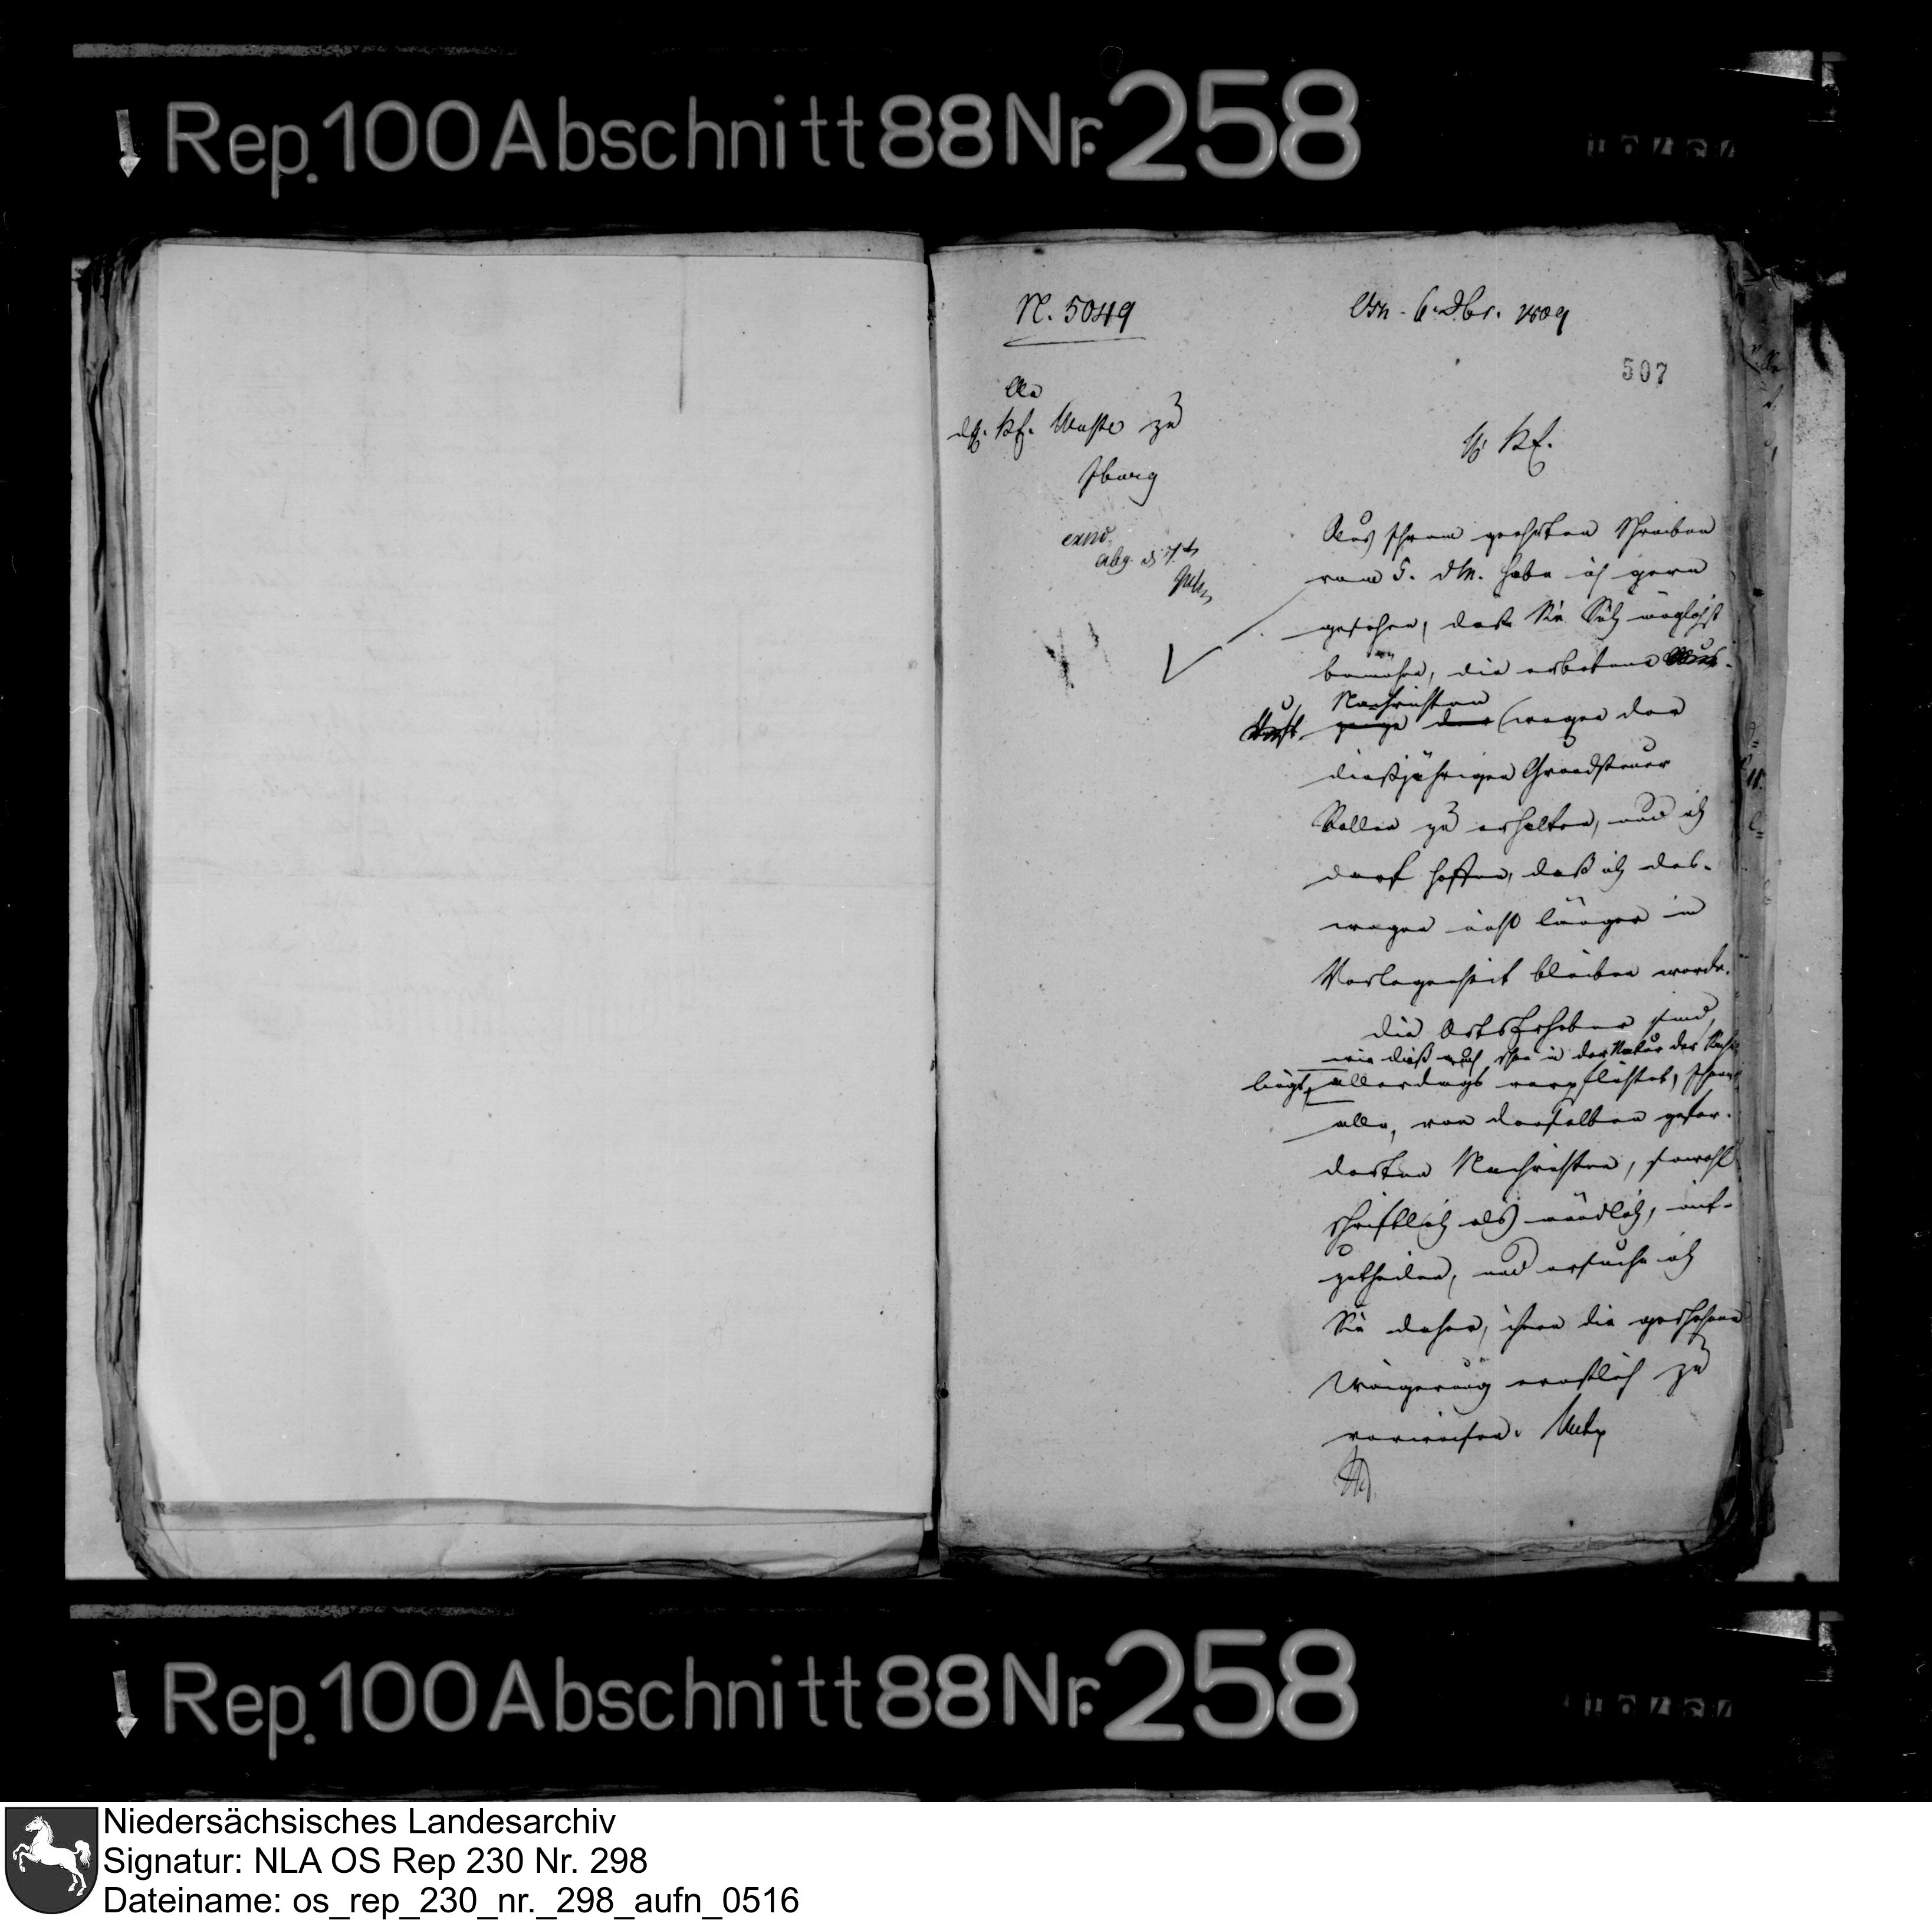 Rep. 100 Abschnitt 88 Nr. 258
N. 5049
Osn. 6. Dbr. 1809
507
An
Wüste zu
Iburg
abg. d 7t
Aus Ihrem geehrten Schreiben
vom 5. d M. habe ich gern
gesehen, daß Sie Sich möglichst
bemühen, die erbetenen
Nachrichten
wegen der
dießjährigen Grundsteuer
Rollen zu erhalten, und ich
darf hoffen, daß ich des-
wegen nicht länger in
Verlegenheit bleiben werde.
Die Ortserheber sind,
wie dieß auch schon in der Natur der Sache
liegt, allerdings verpflichtet, Ihnen
alle, von denselben gefor-
derten Nachrichten, sowohl
schriftlich als mündlich, mit-
zutheilen, und ersuche ich
Sie daher, ihnen die geschehene
Weigerung ernstlich zu
verweisen.
Rep. 100 Abschnitt 88 Nr. 258
Niedersächsisches Landesarchiv
Signatur: NLA OS Rep 230 Nr. 298
Dateiname: os_rep_230_nr._298_aufn_0516